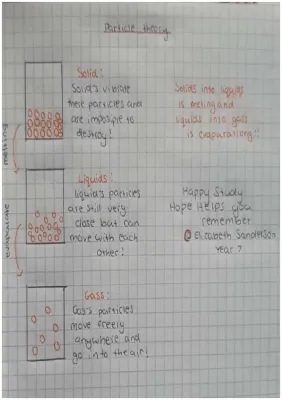 Particle theory
Solid:
Solid's vibrate
there particles and
are imposible to
destroy!
Solids into liquids
is melting and
liquids into gass
is evapurationg!!
melting
Liquids:
liquid's particles
are still very
close but can
move with each
other!
Happy Study
Hope Helps you
remember
Elizabeth Sanderson
year 7
evaporating
Gass:
Gas's particles
move freely
anywhere and
go into the air!